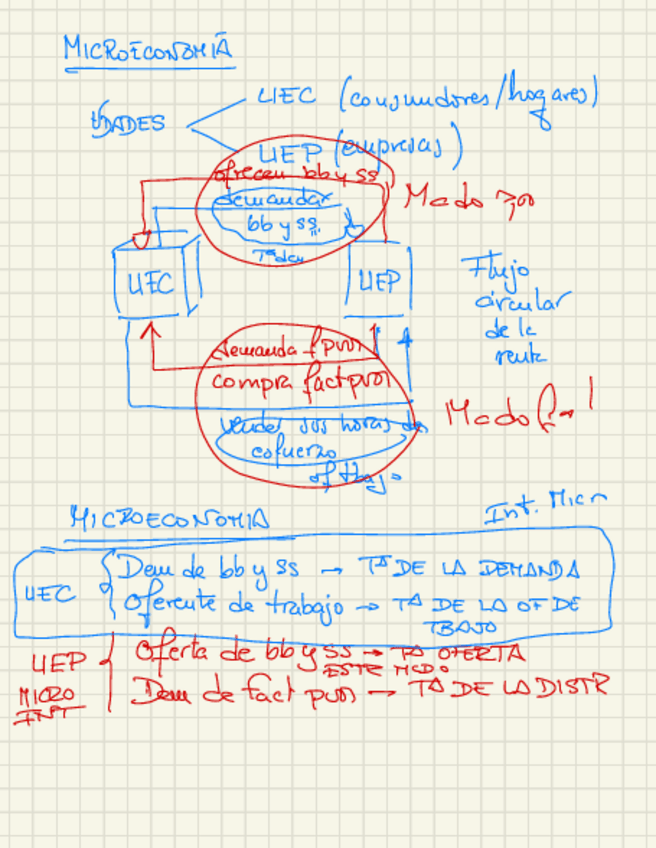 MICROECONOMÍA
UDADES
UEC (consumidores/hogares)
UEP (empresas)
ofrecen bb y ss
demandar
bb y ss.
Tª dem
Mcdo
UEC
UEP
Flujo
circular
de la
renta
demanda f
compra fact
vender sus horas de
esfuerzo
of tbajo
Mcdo
MICROECONOMIA
Int. Micr
UEC
Dem de bb y ss → Tª DE LA DEMANDA
Oferente de trabajo → Tª DE LA OF DE
TBAJO
UEP
MICRO
INT
Oferta de bb y ss → Tª OFERTA
ESTR MCDO
Dem de fact → Tª DE LA DISTR